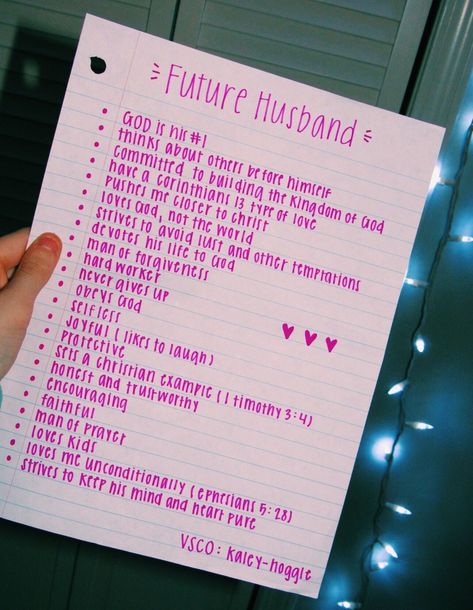 Future Husband
• GOD is his #1
• thinks about others before himself
• committed to building the kingdom of God
• have a corinthians 13 type of love
• pushes me closer to christ
• loves God, not the world
• strives to avoid lust and other temptations
• devotes his life to God
• man of forgiveness
• hard worker
• never gives up
• obeys God
• selfless
• joyful (likes to laugh)
• protective
• sets a christian example (1 timothy 3:4)
• honest and trustworthy
• encouraging
• faithful
• man of prayer
• loves kids
• loves me unconditionally (ephesians 5:28)
• strives to keep his mind and heart pure
VSCO: kaley-hoggle